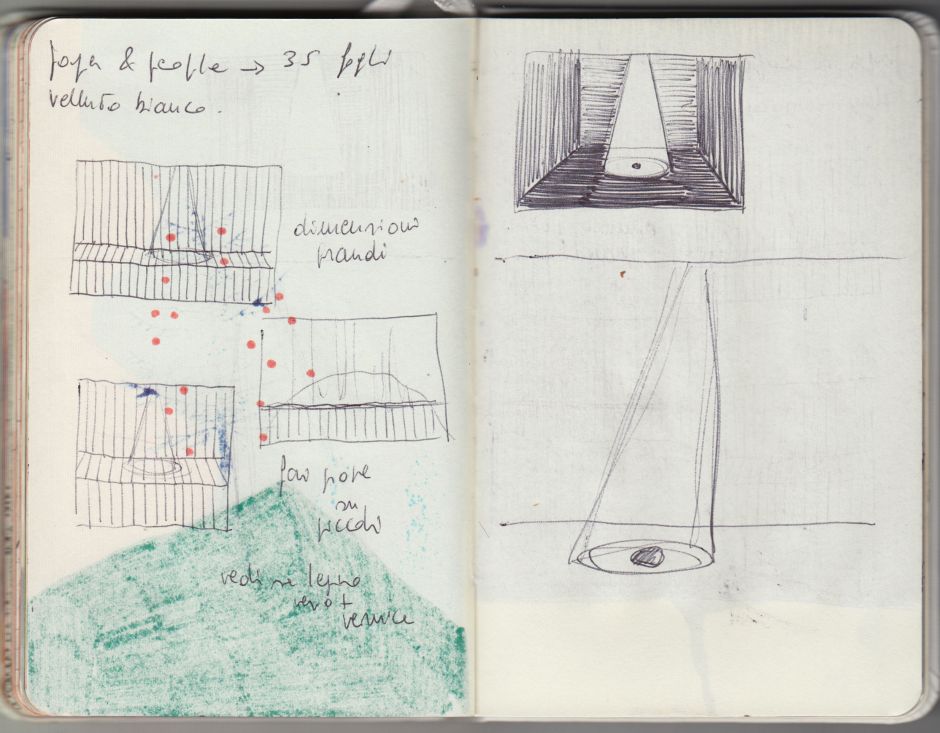 paper & people → 35 fogli
velluto bianco.
dimensioni
grandi
fare prove
su
piccoli
vedi se legno
vero +
vernice